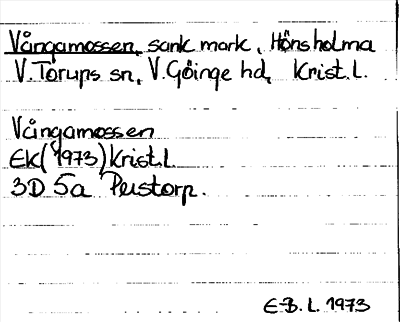 Vångamossen, sank mark, Hönsholma
V. Torups sn, V. Göinge hd, Krist. L.
Vångamossen
Ek (1973) Krist. L
3D 5a Perstorp.
E-B. L. 1973